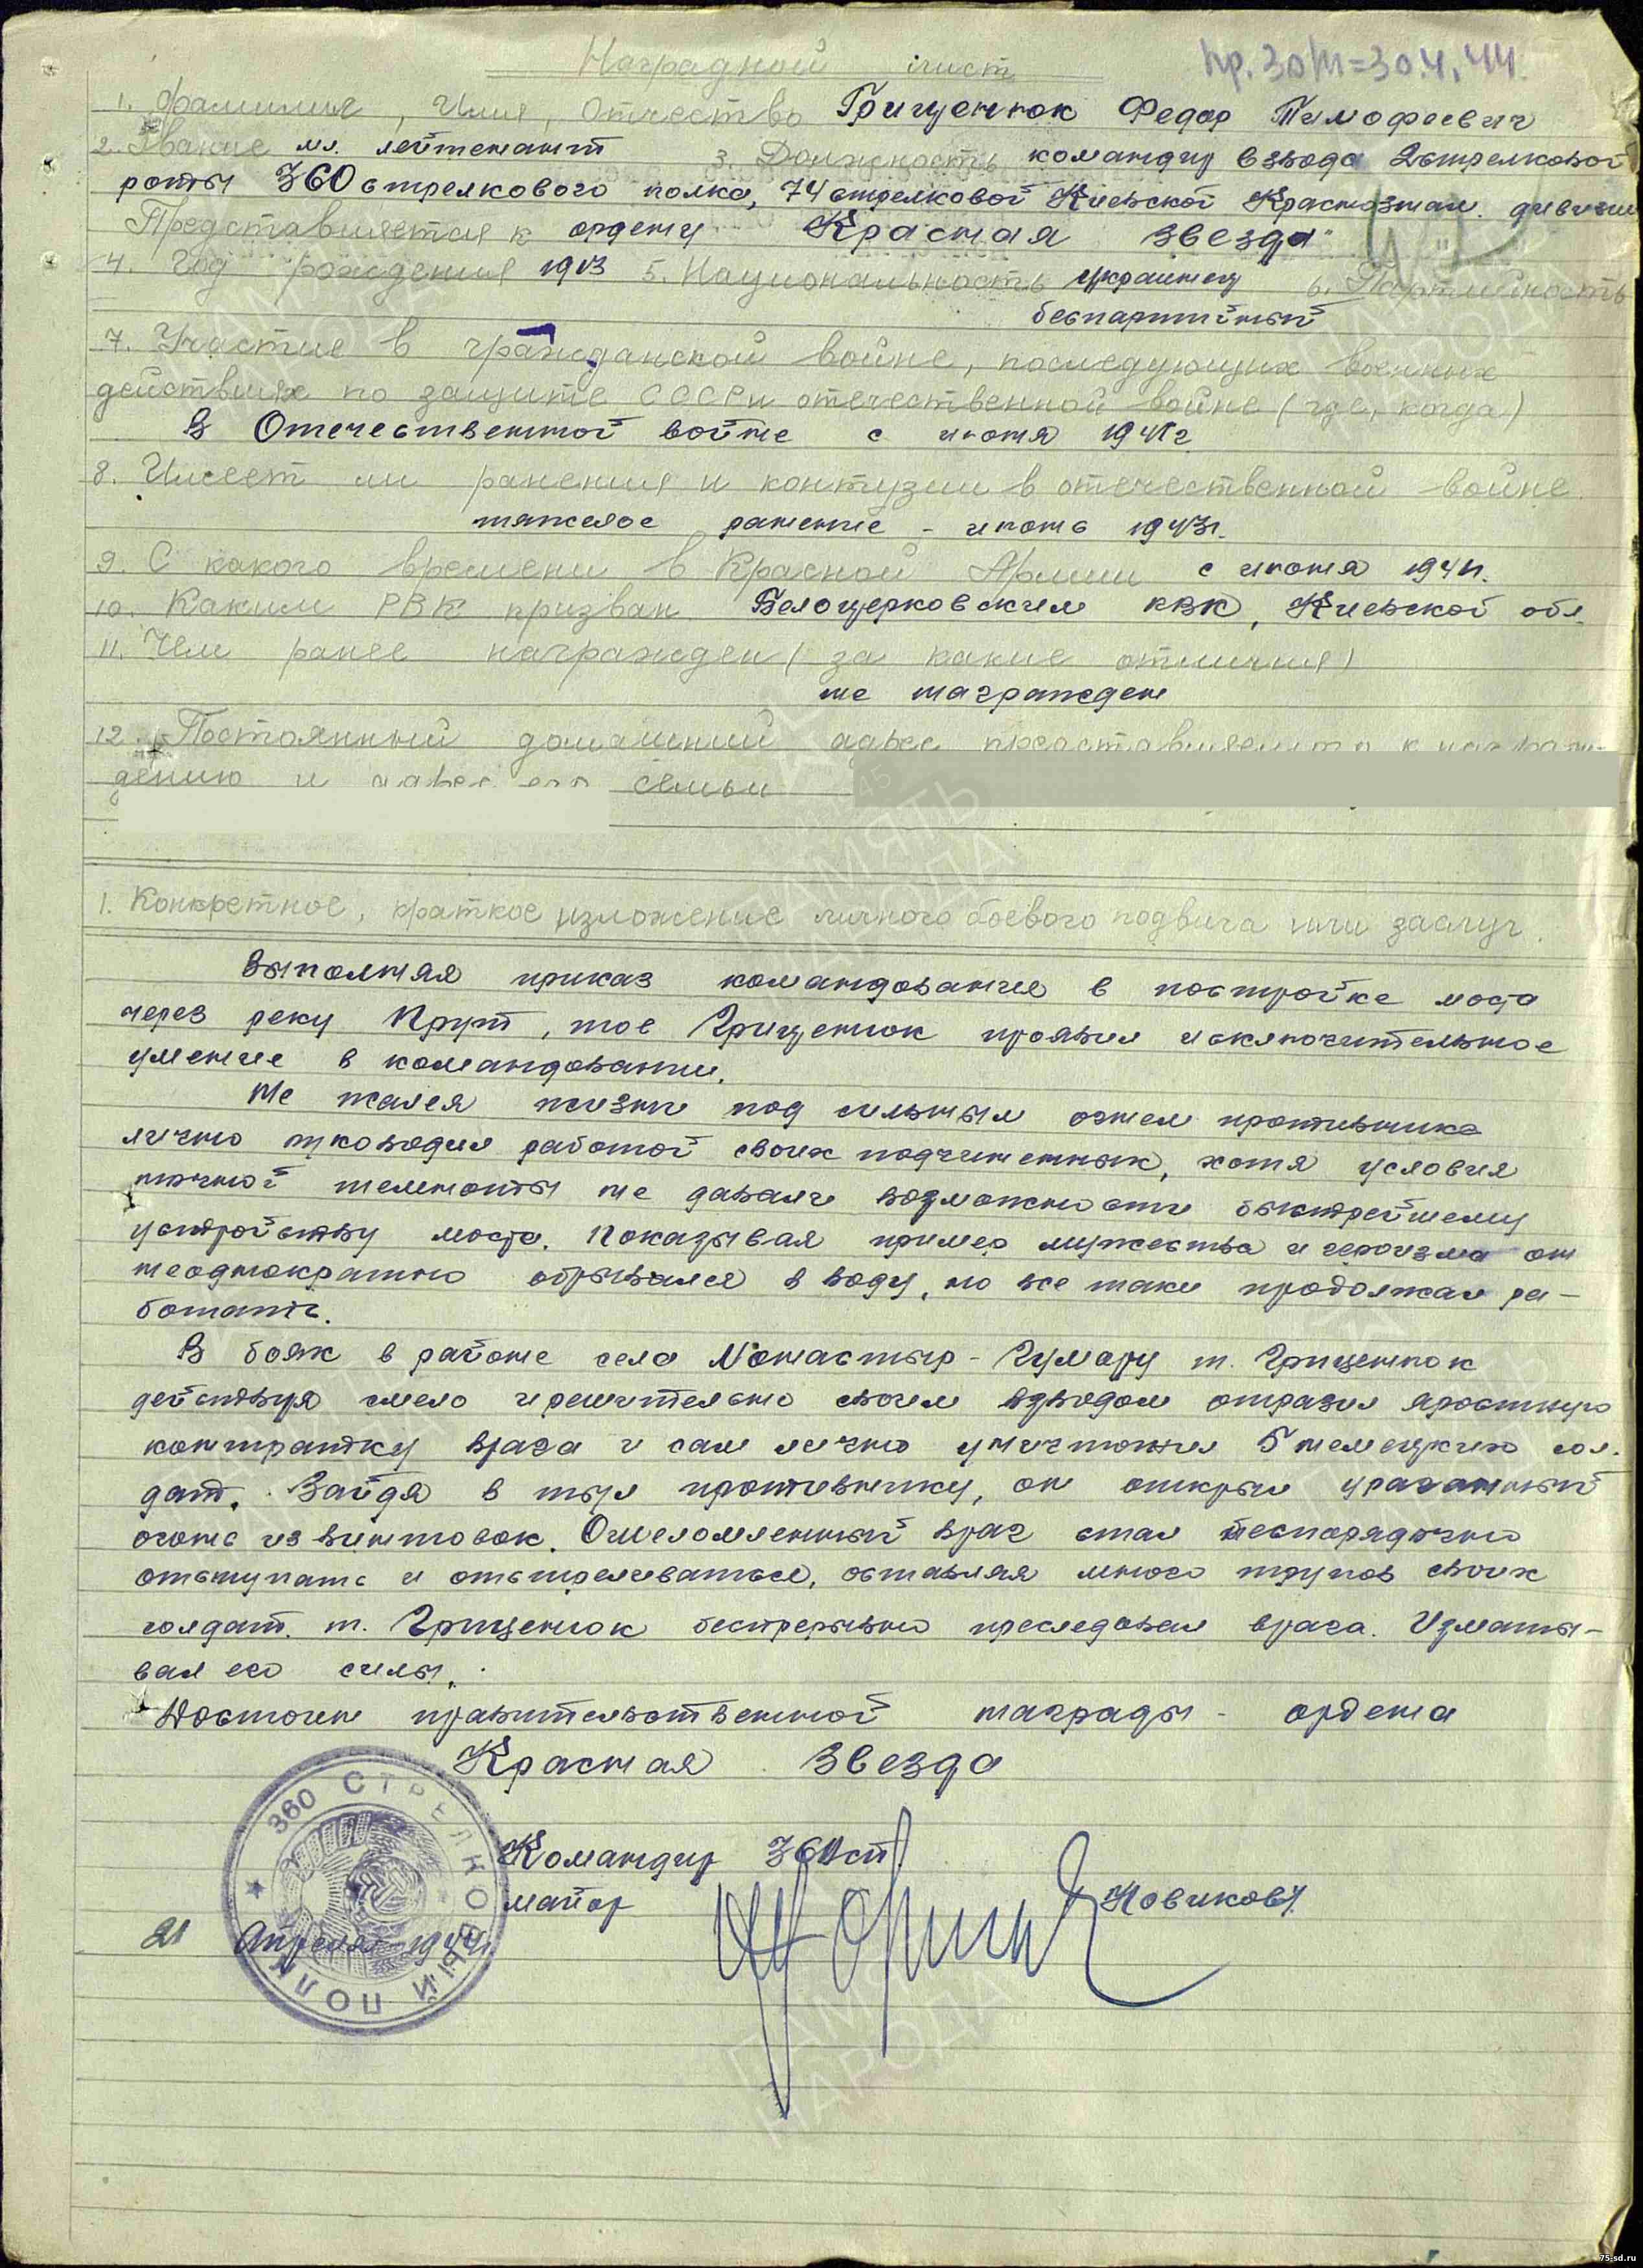 Наградной лист
пр. 30/н = 30.4.44.
1. Фамилия, Имя, Отчество Грищенюк Федор Тимофеевич
2. Звание мл. лейтенант 3. Должность командир взвода 2 стрелковой
роты 360 стрелкового полка, 74 стрелковой Киевской Краснознам. дивизии
Представляется к ордену "Красная звезда"
4. Год рождения 1913 5. Национальность украинец 6. Партийность
беспартийный
7. Участие в гражданской войне, последующих военных
действиях по защите СССР и отечественной войне (где, когда)
В Отечественной войне с июня 1941г.
8. Имеет ли ранения и контузии в отечественной войне.
тяжелое ранение - июнь 1943г.
9. С какого времени в Красной Армии с июня 1941г.
10. Каким РВК призван Белоцерковским РВК, Киевской обл.
11. Чем ранее награжден (за какие отличия)
не награжден
12. Постоянный домашний адрес представляемого к награж-
дению и адрес его семьи
1. Конкретное, краткое изложение личного боевого подвига или заслуг.
Выполняя приказ командования в постройке моста
через реку Прут, тов Грищенюк проявил исключительное
умение в командовании.
Не жалея жизни под сильным огнем противника
лично руководил работой своих подчиненных, хотя условия
ночной темноты не давали возможности быстрейшему
устройству моста. Показывая пример мужества и героизма он
неоднократно обрывался в воду, но все таки продолжал ра-
ботать.
В боях в районе села Монастыр-Гумору т. Грищенюк
действуя смело и решительно своим взводом отразил яростную
контратку врага и сам лично уничтожил 5 немецких сол-
дат. Зайдя в тыл противнику, он открыл ураганный
огонь из винтовок. Ошеломленный враг стал беспорядочно
отступать и отстреливаться, оставляя много трупов своих
солдат. т. Грищенюк беспрерывно преследовал врага. Изматы-
вал его силы.
Достоин правительственной награды - ордена
Красная Звезда
Командир 360 сп
майор Новиков
21 Апреля 1944г.
360 СТРЕЛКОВЫЙ ПОЛК
ПАМЯТЬ
НАРОДА
75-sd.ru